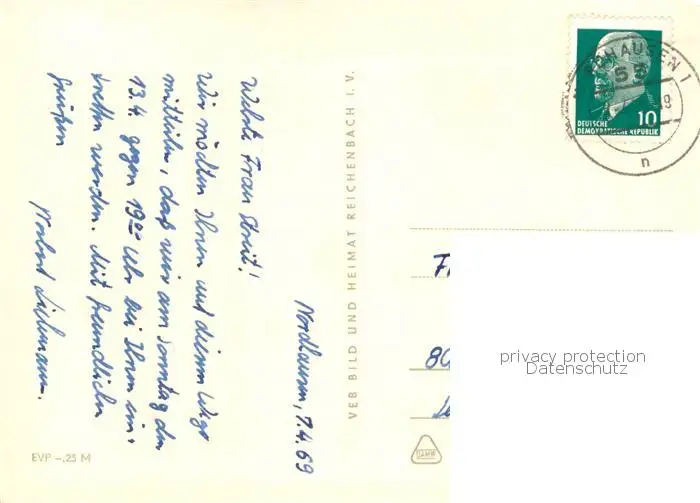 Nordhausen, 7.4.69
Werte Frau Streit!
Wir möchten Ihnen auf diesem Wege
mitteilen, daß wir am Sonntag den
13.4. gegen 19⁰⁰ Uhr bei Ihnen ein-
treffen werden. Mit freundlichen
Grüßen
Norbert
VEB BILD UND HEIMAT REICHENBACH I. V.
EVP -,25 M
DEUTSCHE
DEMOKRATISCHE REPUBLIK
10
HAUSEN 1
55
n
80
privacy protection
Datenschutz